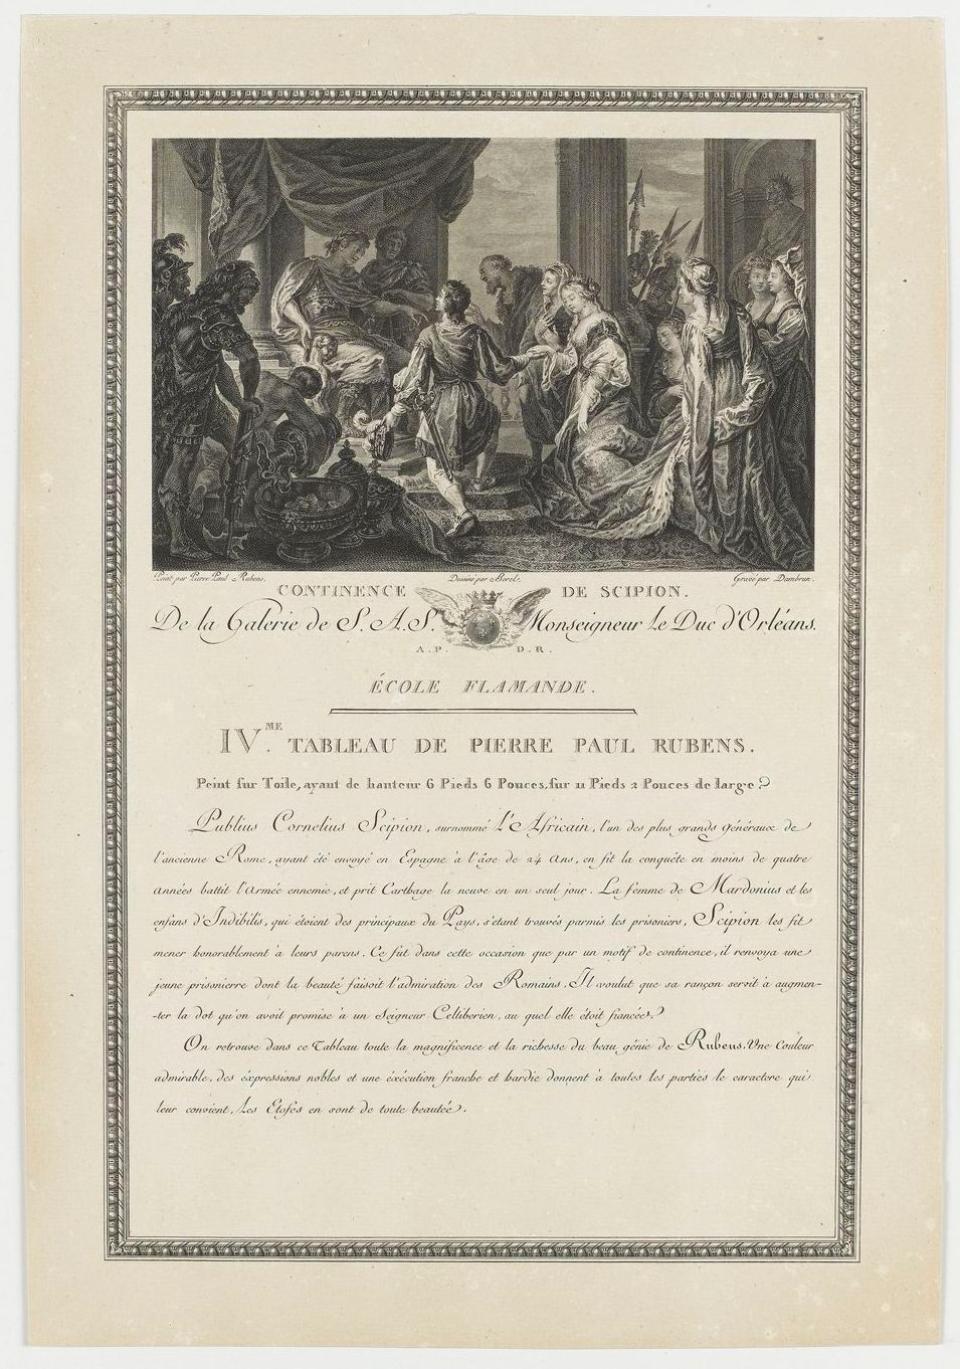 Peint par Pierre Paul Rubens. Dessiné par Borel. Gravé par Dambrun.
CONTINENCE DE SCIPION.
De la Galerie de S. A. S. Monseigneur Le Duc d'Orléans.
A. P. D. R.
ÉCOLE FLAMANDE.
IV.ME TABLEAU DE PIERRE PAUL RUBENS.
Peint sur Toile, ayant de hauteur 6 Pieds 6 Pouces, sur 11 Pieds 2 Pouces de large.
Publius Cornelius Scipion, surnommé l'Africain, l'un des plus grands généraux de
l'ancienne Rome, ayant été envoyé en Espagne à l'âge de 24 ans, en fit la conquête en moins de quatre
années battit l'Armée ennemie, et prit Carthage la neuve en un seul jour. La femme de Mardonius et les
enfans d'Indibilis, qui étoient des principaux du Pays, s'étant trouvés parmis les prisoniers, Scipion les fit
mener honorablement à leurs parens. Ce fut dans cette occasion que par un motif de continence, il renvoya une
jeune prisonierre dont la beauté faisoit l'admiration des Romains. Il voulut que sa rançon servit à augmen-
-ter la dot qu'on avoit promise à un Seigneur Celtiberien, au quel elle étoit fiancée.
On retrouve dans ce Tableau toute la magnificence et la richesse du beau génie de Rubens. Une Couleur
admirable, des éxpressions nobles et une éxécution franche et hardie donnent à toutes les parties le caractere qui
leur convient. Les Etofes en sont de toute beautée.